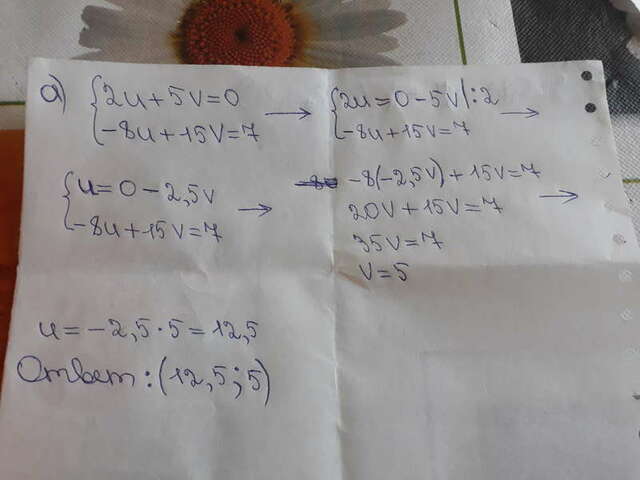 а) {2u + 5v = 0 → {2u = 0 - 5v |:2 →
-8u + 15v = 7 -8u + 15v = 7
{u = 0 - 2,5v → -8(-2,5v) + 15v = 7
-8u + 15v = 7 20v + 15v = 7 →
35v = 7
v = 5
u = -2,5 · 5 = 12,5
Ответ: (12,5; 5)